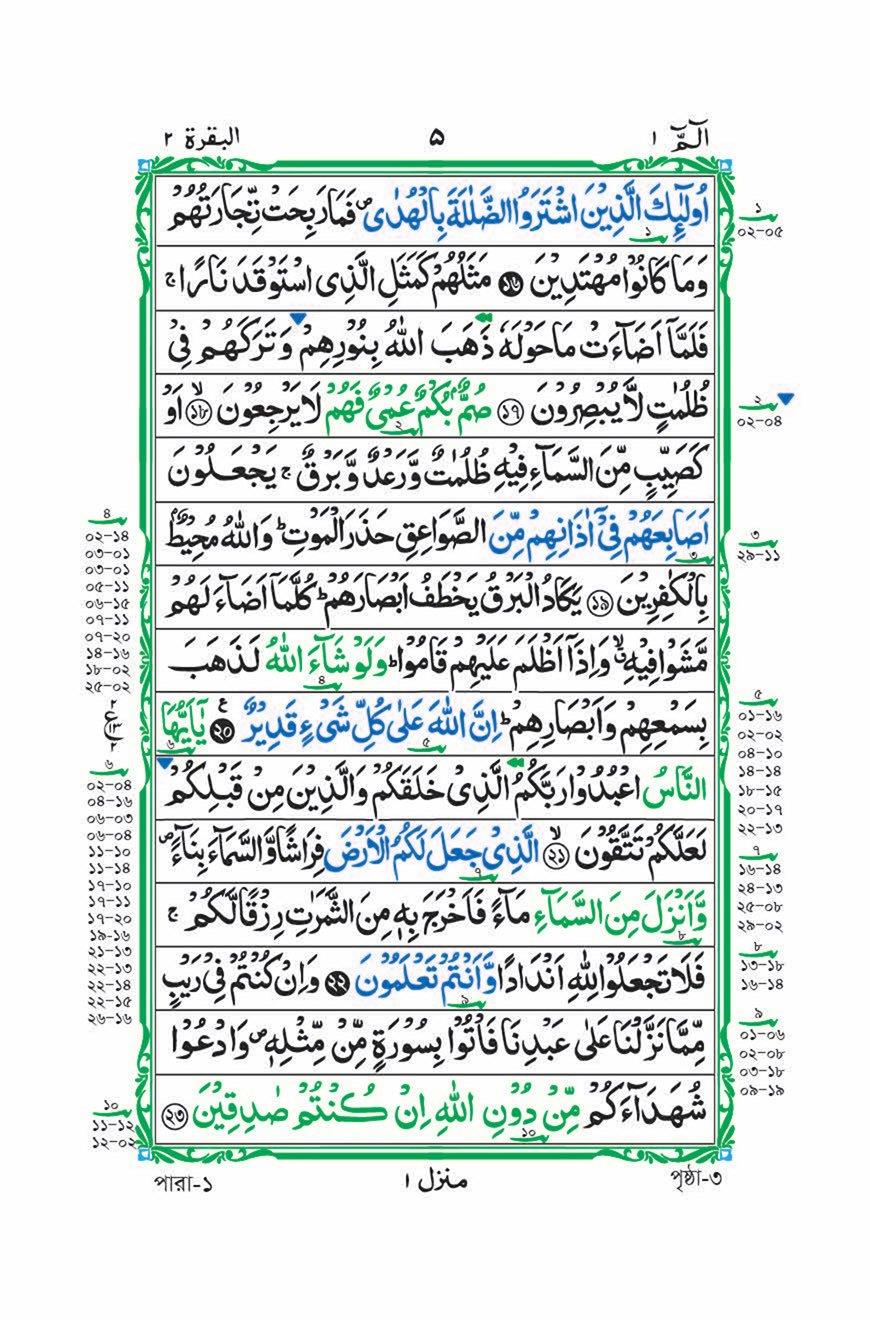 الٓمّٓ ١
۵
البقرة ٢
اُولٰٓئِكَ الَّذِيْنَ اشْتَرَوُا الضَّلٰلَةَ بِالْهُدٰى ص فَمَا رَبِحَتْ تِّجَارَتُهُمْ
وَمَا كَانُوْا مُهْتَدِيْنَ ১৬ مَثَلُهُمْ كَمَثَلِ الَّذِى اسْتَوْقَدَ نَارًا ج
فَلَمَّآ اَضَآءَتْ مَا حَوْلَهٗ ذَهَبَ اللّٰهُ بِنُوْرِهِمْ وَتَرَكَهُمْ فِىْ
ظُلُمٰتٍ لَّا يُبْصِرُوْنَ ১৭ صُمٌّ ۢ بُكْمٌ عُمْىٌ فَهُمْ لَا يَرْجِعُوْنَ ১৮ لا اَوْ
كَصَيِّبٍ مِّنَ السَّمَآءِ فِيْهِ ظُلُمٰتٌ وَّرَعْدٌ وَّبَرْقٌ ج يَجْعَلُوْنَ
اَصَابِعَهُمْ فِىْٓ اٰذَانِهِمْ مِّنَ الصَّوَاعِقِ حَذَرَ الْمَوْتِ ط وَاللّٰهُ مُحِيْطٌ ۢ
بِالْكٰفِرِيْنَ ১৯ يَكَادُ الْبَرْقُ يَخْطَفُ اَبْصَارَهُمْ ط كُلَّمَآ اَضَآءَ لَهُمْ
مَّشَوْا فِيْهِ ق لا وَاِذَآ اَظْلَمَ عَلَيْهِمْ قَامُوْا ط وَلَوْ شَآءَ اللّٰهُ لَذَهَبَ
بِسَمْعِهِمْ وَاَبْصَارِهِمْ ط اِنَّ اللّٰهَ عَلٰى كُلِّ شَىْءٍ قَدِيْرٌ ২০ ع يٰٓاَيُّهَا
النَّاسُ اعْبُدُوْا رَبَّكُمُ الَّذِىْ خَلَقَكُمْ وَالَّذِيْنَ مِنْ قَبْلِكُمْ
لَعَلَّكُمْ تَتَّقُوْنَ ২১ لا الَّذِىْ جَعَلَ لَكُمُ الْاَرْضَ فِرَاشًا وَّالسَّمَآءَ بِنَآءً ص
وَّاَنْزَلَ مِنَ السَّمَآءِ مَآءً فَاَخْرَجَ بِهٖ مِنَ الثَّمَرٰتِ رِزْقًا لَّكُمْ ج
فَلَا تَجْعَلُوْا لِلّٰهِ اَنْدَادًا وَّاَنْتُمْ تَعْلَمُوْنَ ২২ وَاِنْ كُنْتُمْ فِىْ رَيْبٍ
مِّمَّا نَزَّلْنَا عَلٰى عَبْدِنَا فَاْتُوْا بِسُوْرَةٍ مِّنْ مِّثْلِهٖ ص وَادْعُوْا
شُهَدَآءَكُمْ مِّنْ دُوْنِ اللّٰهِ اِنْ كُنْتُمْ صٰدِقِيْنَ ২৩
১
০২-০৫
২
০২-০৪
৩
২৯-১১
৫
০১-১৬
০২-০২
০৪-১০
১৪-১৪
১৮-১৫
২০-১৭
২২-১৩
৭
১৬-১৪
২৪-১৩
২৫-০৮
২৯-০২
৮
১৩-১৮
১৬-১৪
৯
০১-০৬
০২-০৮
০৩-১৮
০৯-১৯
৪
০২-১৪
০৩-০১
০৩-০১
০৫-১১
০৬-১৫
০৭-১১
০৭-২০
১৪-১৬
১৮-০২
২৫-০২
২
ع ১৩
২
৬
০২-০৪
০৪-১৬
০৬-০৩
০৬-০৪
১১-১০
১১-১৪
১৭-১০
১৭-১১
১৭-২০
১৯-১৬
২১-১৩
২২-১৩
২২-১৪
২২-১৫
২৬-১৬
১০
১১-১২
১২-০২
পৃষ্ঠা-৩
منزل ١
পারা-১